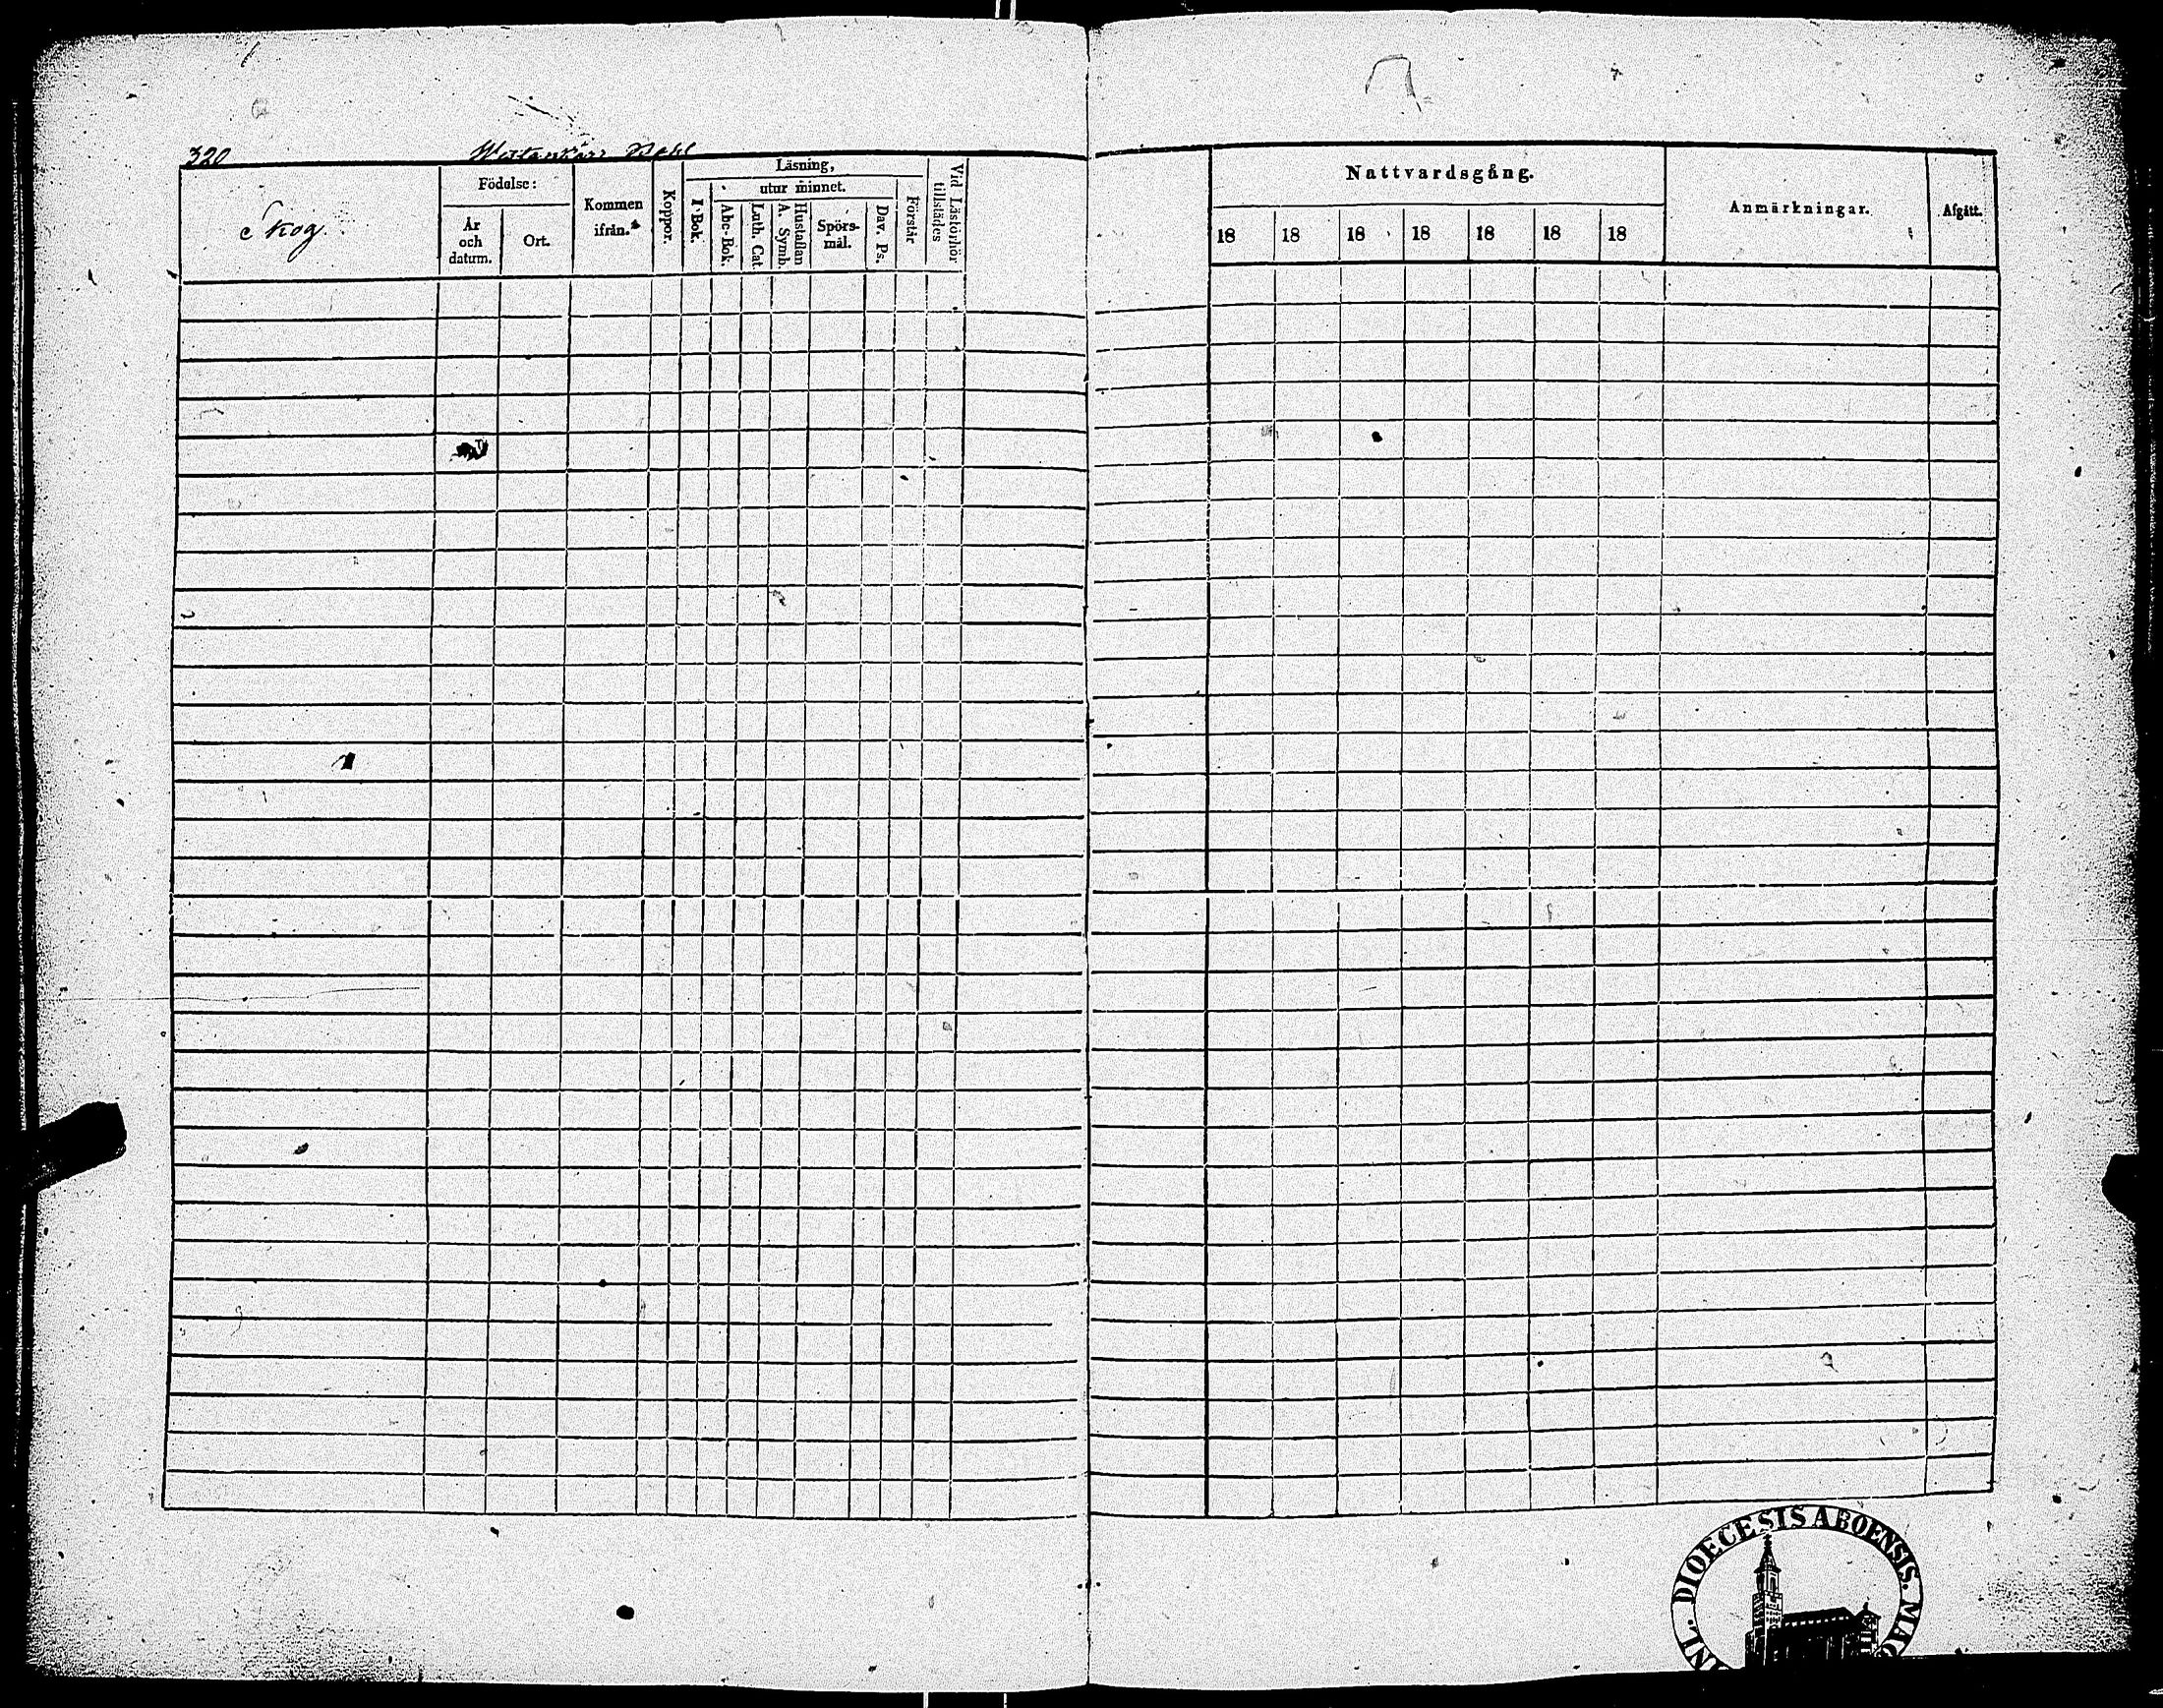 320 Westankärr
Skog
Födelse:
År och datum.
Ort.
Kommen ifrån.
Koppor.
Läsning,
I Bok.
utur minnet.
Abc-Bok.
Luth. Cat.
Hustaflan A. Symb.
Spörs-mål.
Dav. Ps.
Förstår
Vid Läsförhör tillstädes
Nattvardsgång.
18 18 18 18 18 18 18
Anmärkningar.
Afgått.
DIOECESIS ABOENSIS. MAG